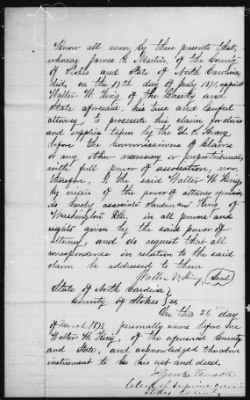 Know all men by these presents that,
whereas James R. Martin, of the County
of Stokes and State of North Carolina
did, on the 17th day of July 1871, appoint
Walter W. King of the County and
State aforesaid, his true and lawful
attorney to prosecute his claim for stores
and supplies taken by the U.S. Army
before the Commissioners of Claims
or any other necessary or proper tribunal,
with full power of association, now
therefore, I the said Walter W. King,
by virtue of the power of attorney aforesaid,
do hereby associate King of
Washington D.C. in all powers and
rights given by the said power of
attorney, and do request that all
correspondence in relation to the said
claim be addressed to them
Walter W. King (Seal)
State of North Carolina,
County of Stokes ss
On this 26 day
of March 1873, personally came before me
Walter W. King, of the aforesaid County
and State, and acknowledged the above
instrument to be his act and deed.
Clerk of Superior Court
Stokes County